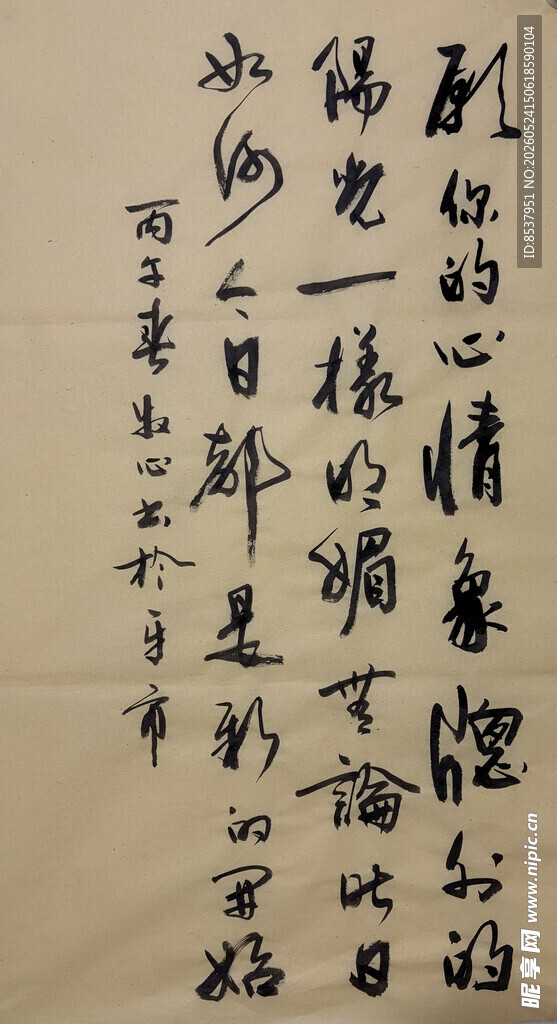 愿你的心情象窗外的
陽光一樣明媚無論昨日
如何今日都是新的開始
丙午春 牧心書於牙市
ID:8537951 NO:20260524150618590104
昵享网 www.nipic.cn